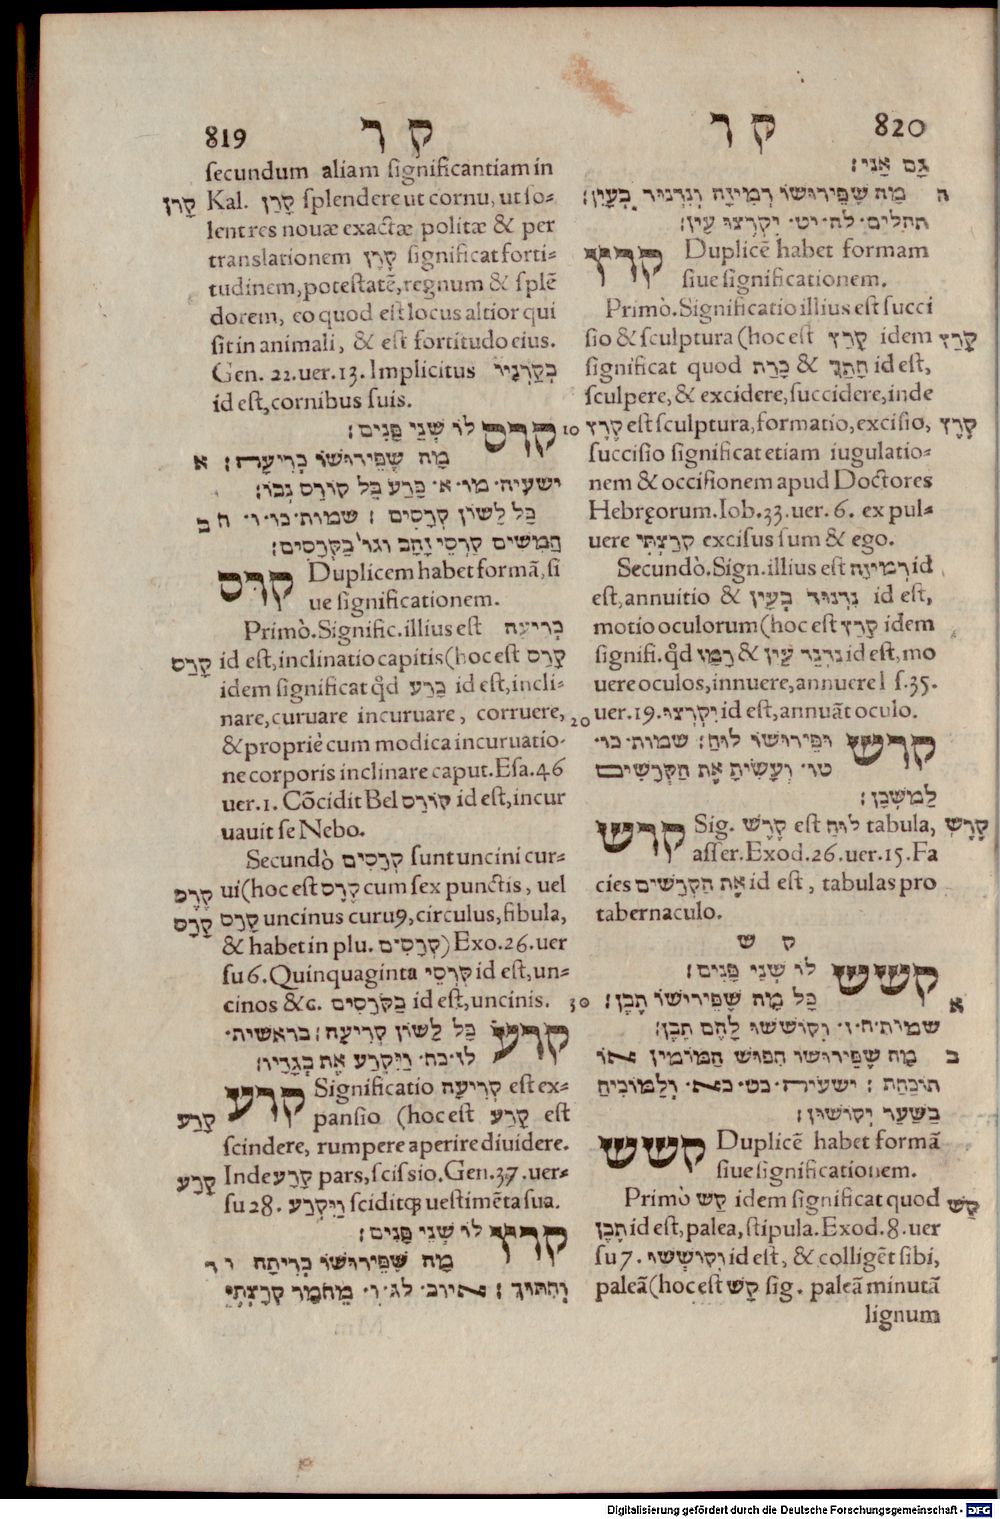 819 קר
secundum aliam significantiam in
Kal. קָרַן splendere ut cornu, ut so- קָרַן
lent res nouæ exactæ politæ & per
translationem קֶרֶן significat forti-
tudinem, potestatē, regnum & splē
dorem, eo quod est locus altior qui
sit in animali, & est fortitudo eius.
Gen. 22. uer. 13. Implicitus בְּקַרְנָיו
id est, cornibus suis.
קרס לו שְׁנֵי פָּנִים׃
א מַה שֶׁפֵּירוּשׁוֹ כְּרִיעָה׃
ישעיה· מו· א· כָּרַע בֵּל קוֹרֵס נְבוֹ׃
ב כָּל לְשׁוֹן קְרָסִים ׃ שמות· כו· ו·
חֲמִשִּׁים קַרְסֵי זָהָב וגו' בַּקְּרָסִים׃
קרס Duplicem habet formā, si
ue significationem.
Primò. Signific. illius est כְּרִיעָה
קָרַס id est, inclinatio capitis (hoc est קָרַס
idem significat qđ כָּרַע id est, incli-
nare, curuare incuruare, corruere,
& propriè cum modica incuruatio-
ne corporis inclinare caput. Esa. 46
uer. 1. Cōcidit Bel קוֹרֵס id est, incur
uauit se Nebo.
Secundò קְרָסִים sunt uncini cur-
קֶרֶס ui (hoc est קֶרֶס cum sex punctis, uel
קָרָס קָרָס uncinus curu9, circulus, fibula,
& habet in plu. קְרָסִים) Exo. 26. uer
su 6. Quinquaginta קַרְסֵי id est, un-
cinos &c. בַּקְּרָסִים id est, uncinis.
קרע כָּל לְשׁוֹן קְרִיעָה׃ בראשית·
לז· כח· וַיִּקְרַע אֶת בְּגָדָיו׃
קרע Significatio קְרִיעָה est ex-
קָרַע pansio (hoc est קָרַע est
scindere, rumpere aperire diuidere.
קָרַע Inde קָרַע pars, scissio. Gen. 37. uer-
su 28. וַיִּקְרַע sciditq; uestimēta sua.
קרץ לו שְׁנֵי פָּנִים׃
מַה שֶּׁפֵּירוּשׁוֹ כְּרִיתָה
וְחִתּוּךְ ׃ איוב· לג· ו· מֵחֹמֶר קֹרַצְתִּי
קר 820
גַּם אָנִי׃
מַה שֶּׁפֵּירוּשׁוֹ רְמִיזָה וְנִדְנוּד בָּעַיִן׃
תהלים· לה· יט· יִקְרְצוּ עָיִן׃
קרץ Duplicē habet formam
siue significationem.
Primò. Significatio illius est succi
sio & sculptura (hoc est קָרַץ idem קָרַץ
significat quod כָּרַת & חָתַךְ id est,
sculpere, & excidere, succidere, inde
10 קֶרֶץ est sculptura, formatio, excisio, קֶרֶץ
succisio significat etiam iugulatio-
nem & occisionem apud Doctores
Hebręorum. Iob. 33. uer. 6. ex pul-
uere קֹרַצְתִּי excisus sum & ego.
Secundò. Sign. illius est רְמִיזָה id
est, annuitio & נִדְנוּד בָּעַיִן id est,
motio oculorum (hoc est קָרַץ idem
signifi. qđ רָמַז & נִדְנֵד עַיִן id est, mo
uere oculos, innuere, annuere ſ. 35.
20 uer. 19. יִקְרְצוּ id est, annuāt oculo.
קרש וּפֵירוּשׁוֹ לוּחַ׃ שמות· כו·
טו· וְעָשִׂיתָ אֶת הַקְּרָשִׁים
לַמִּשְׁכָּן׃
קרש Sig. קֶרֶשׁ est לוּחַ tabula, קֶרֶשׁ
asser. Exod. 26. uer. 15. Fa
cies אֶת הַקְּרָשִׁים id est, tabulas pro
tabernaculo.
ק ש
קשש לו שְׁנֵי פָּנִים׃
30 א כָּל מַה שֶּׁפֵּירוּשׁוֹ תֶבֶן׃
שמות· ה· ז· וְקוֹשְׁשׁוּ לָהֶם תֶּבֶן׃
ב מַה שֶּׁפֵּירוּשׁוֹ
תוֹכַחַת ׃ ישעיה· כט· כא· וְלַמּוֹכִיחַ
בַּשַּׁעַר יְקוֹשׁוּן׃
קשש Duplicē habet formā
siue significationem.
Primò קַשׁ idem significat quod קַשׁ
תֶּבֶן id est, palea, stipula. Exod. 8. uer
su 7. וְקוֹשְׁשׁוּ id est, & colligēt sibi,
paleā (hoc est קַשׁ sig. paleā minutā
lignum
Digitalisierung gefördert durch die Deutsche Forschungsgemeinschaft - DFG